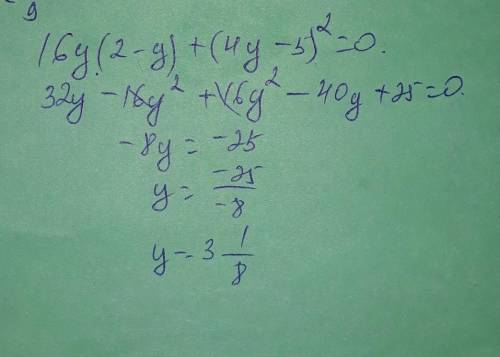 9
16y(2-y)+(4y-5)²=0.
32y-16y²+16y²-40y+25=0.
-8y=-25
y=\frac{-25}{-8}
y=3\frac{1}{8}